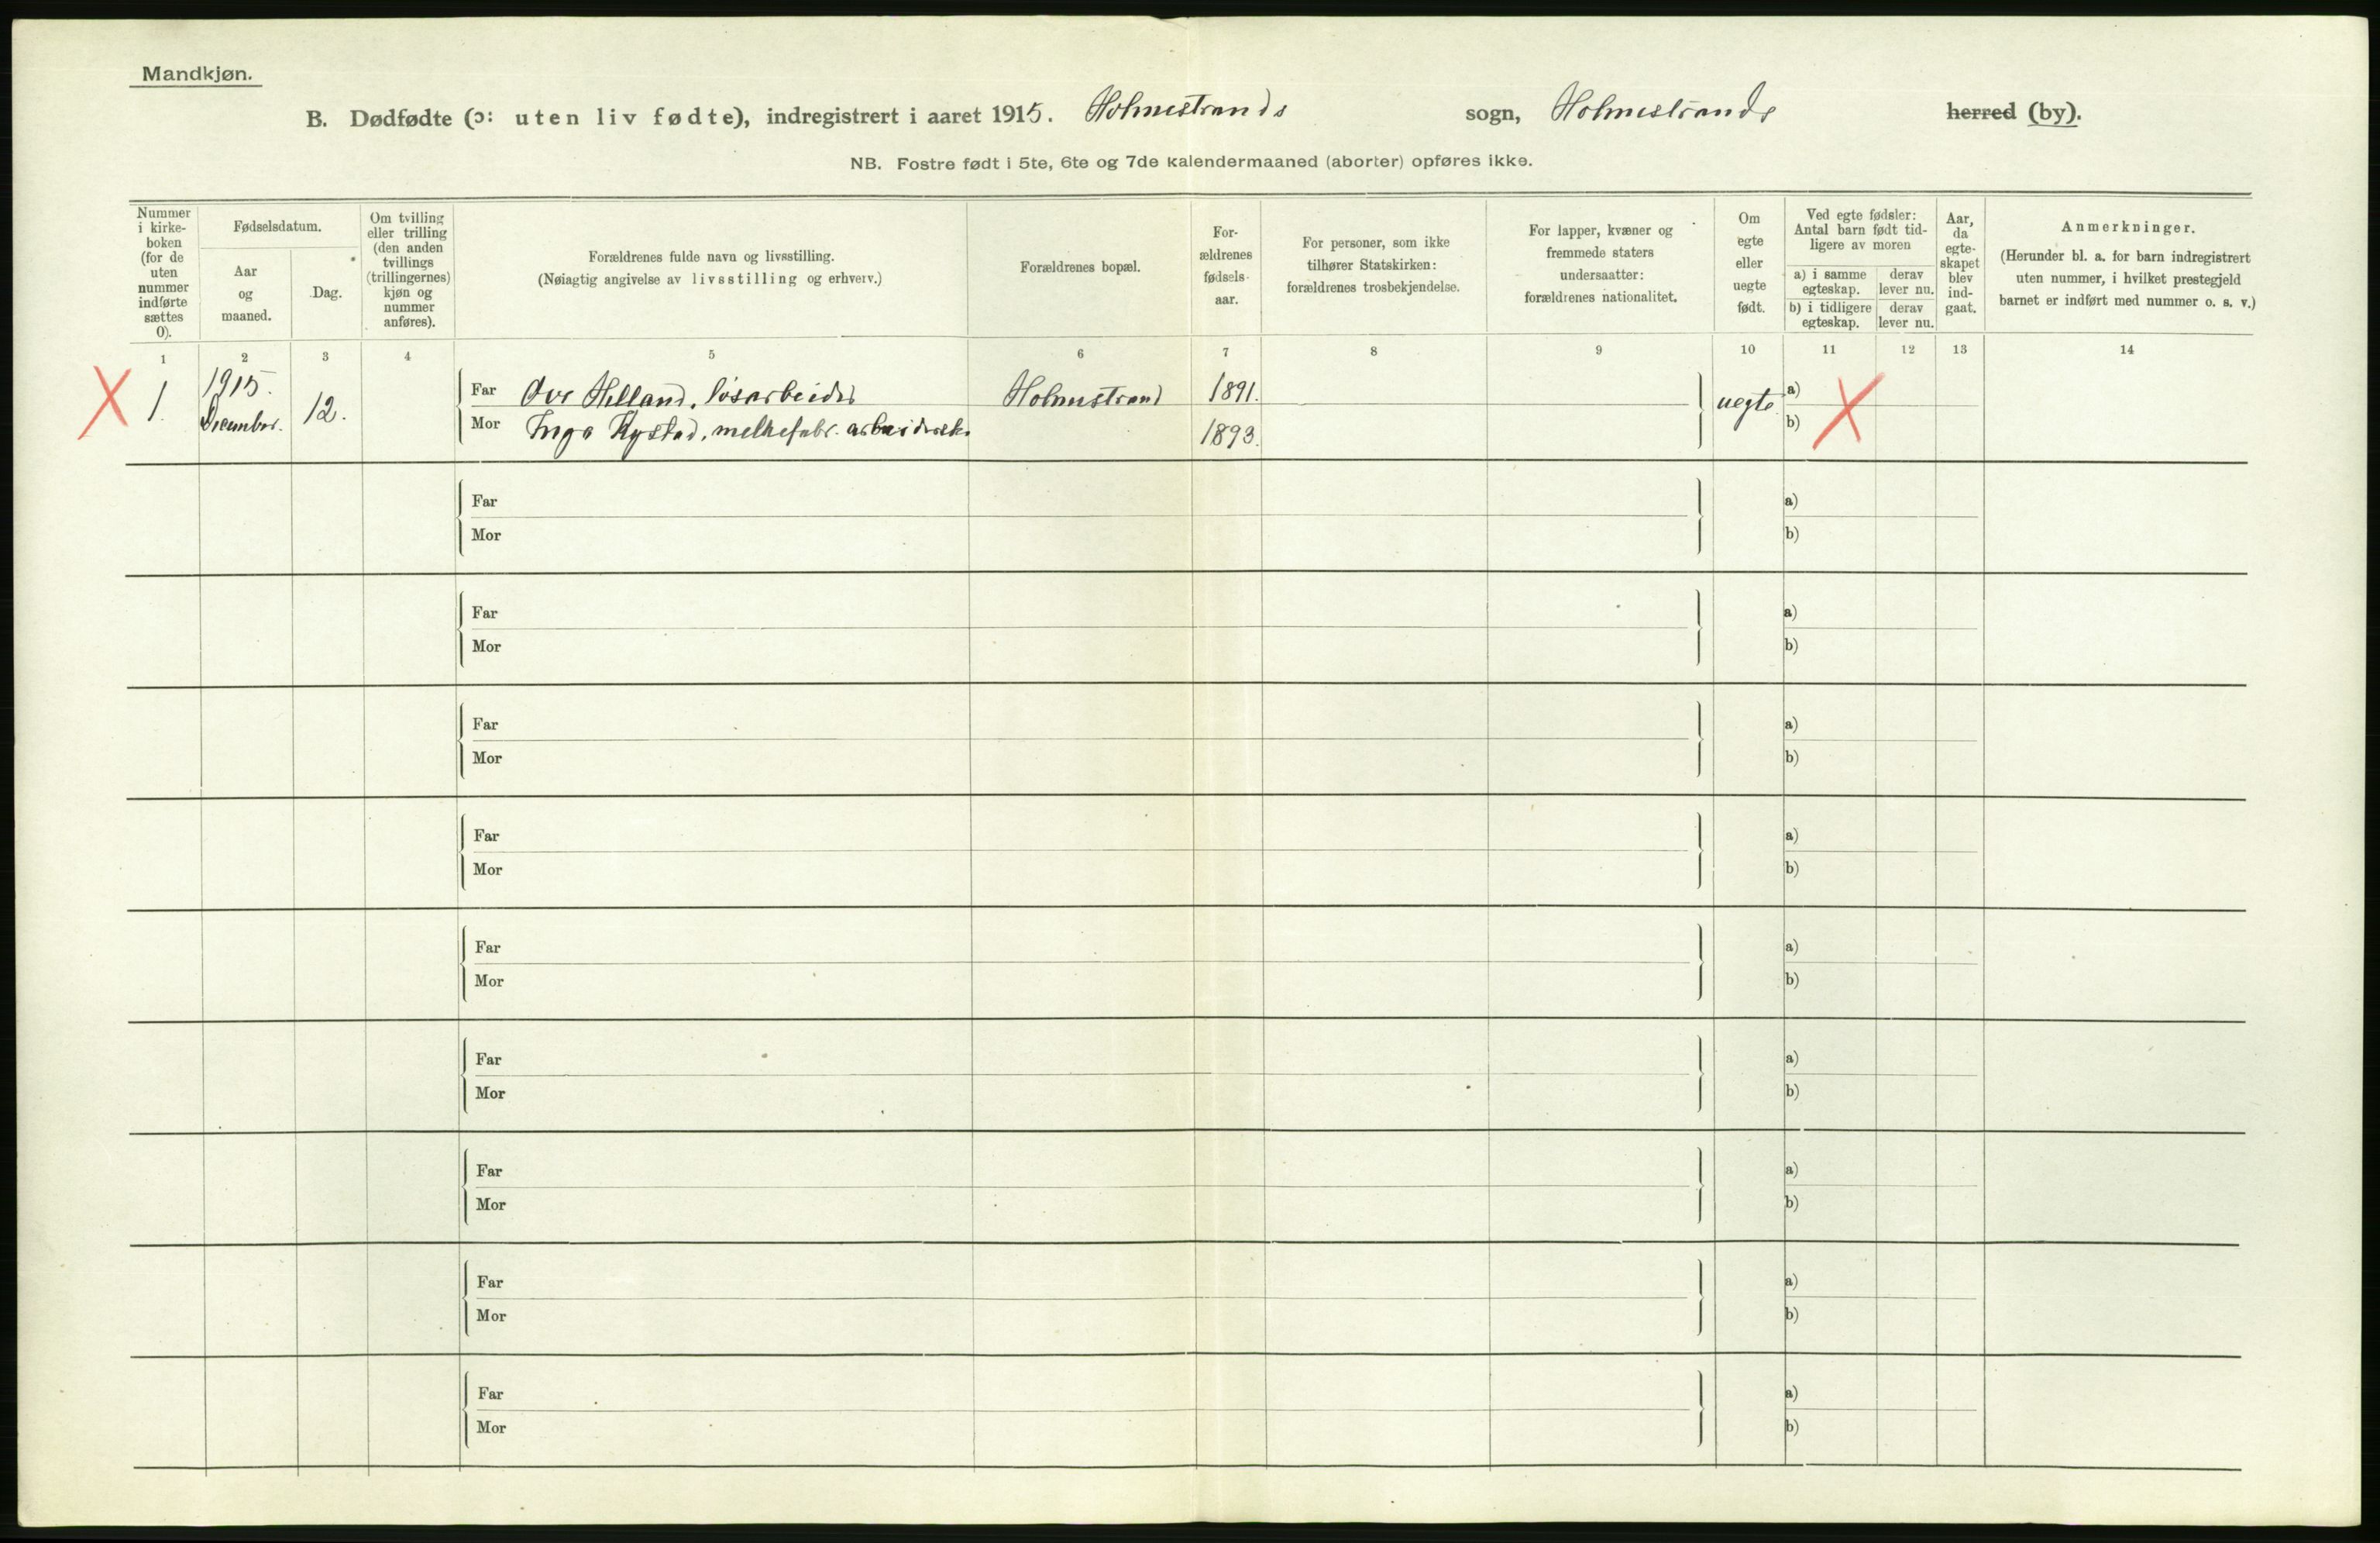 Mandkjøn.
B. Dødfødte (ɔ: uten liv fødte), indregistrert i aaret 1915. Holmestrands sogn, Holmestrands herred (by).
NB. Fostre født i 5te, 6te og 7de kalendermaaned (aborter) opføres ikke.
Nummer
i kirke-
boken
(for de
uten
nummer
indførte
sættes
0).
Fødselsdatum.
Aar
og
maaned.
Dag.
Om tvilling
eller trilling
(den anden
tvillings
(trillingernes)
kjøn og
nummer
anføres).
Forældrenes fulde navn og livsstilling.
(Nøiagtig angivelse av livsstilling og erhverv.)
Forældrenes bopæl.
For-
ældrenes
fødsels-
aar.
For personer, som ikke
tilhører Statskirken:
forældrenes trosbekjendelse.
For lapper, kvæner og
fremmede staters
undersaatter:
forældrenes nationalitet.
Om
egte
eller
uegte
født.
Ved egte fødsler:
Antal barn født tid-
ligere av moren
a) i samme
egteskap.
derav
lever nu.
b) i tidligere
egteskap.
derav
lever nu.
Aar,
da
egte-
skapet
blev
ind-
gaat.
Anmerkninger.
(Herunder bl. a. for barn indregistrert
uten nummer, i hvilket prestegjeld
barnet er indført med nummer o. s. v.)
1 2 3 4 5 6 7 8 9 10 11 12 13 14
1. 1915. December. 12.
Far Ove Helland, løsarbeider Holmestrand 1891. uegte a)
Mor Inga Rystad, melkefabr. arbeiderske. 1893. b)
Far a)
Mor b)
Far a)
Mor b)
Far a)
Mor b)
Far a)
Mor b)
Far a)
Mor b)
Far a)
Mor b)
Far a)
Mor b)
Far a)
Mor b)
Far a)
Mor b)